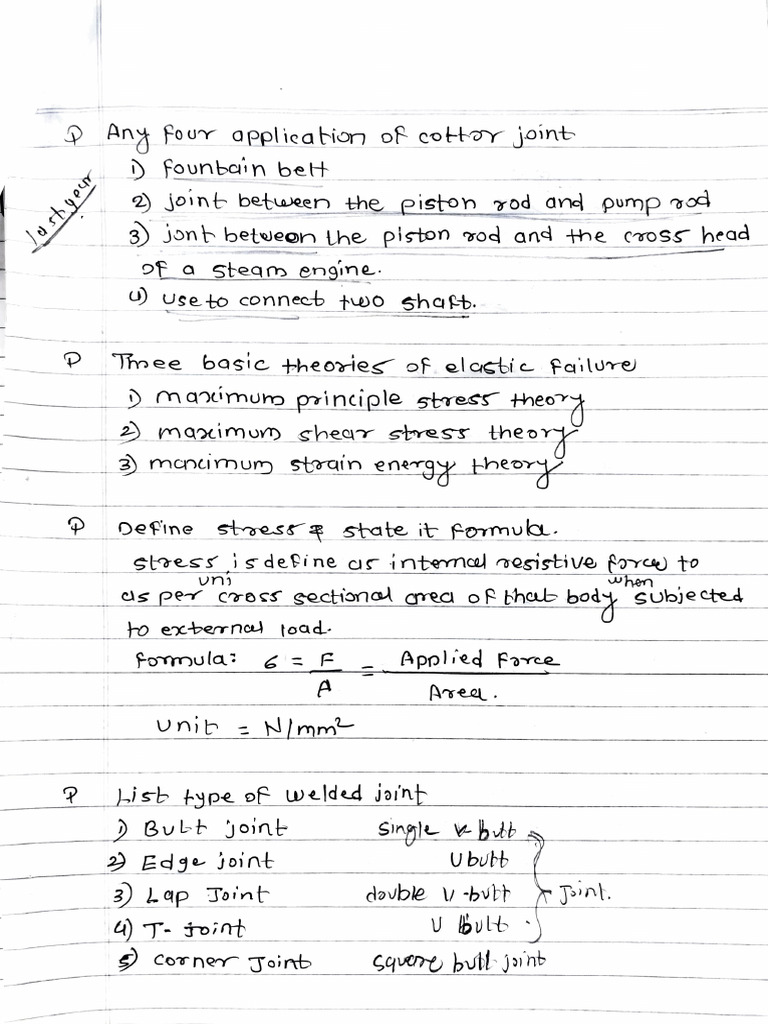 Q Any four application of cottor joint
last year
1) fountain belt
2) joint between the piston rod and pump rod
3) jont between the piston rod and the cross head
of a steam engine.
4) use to connect two shaft.
Q Three basic theories of elastic failure
1) maximum principle stress theory
2) maximum shear stress theory
3) maximum strain energy theory
Q Define stress & state it formula.
stress is define as internal resistive force to
uni when
as per cross sectional area of that body subjected
to external load.
formula: σ = F/A = Applied Force/Area.
Unit = N/mm²
Q List type of welded joint
1) Butt joint single v butt
2) Edge joint U butt
3) Lap Joint double V-butt Joint.
4) T- joint U butt
5) corner Joint square butt joint